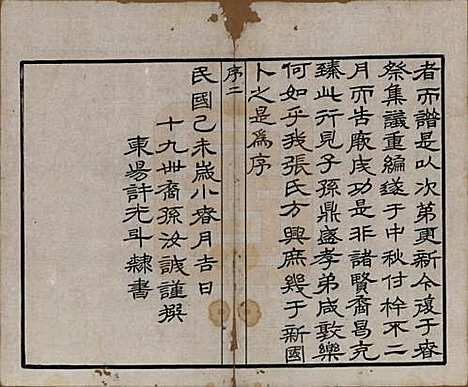 者而譜是以次弟更新今復于春
祭集議重編遂于中秋付梓不二
月而告厥成功是非諸賢裔曷克
臻此行見子孫鼎盛孝弟咸敦樂
何如乎我張氏方興庶幾于新國
卜之是爲序
序二
民國己未歲小春月吉日
十九世裔孫汝誠謹撰
東陽許光斗隸書